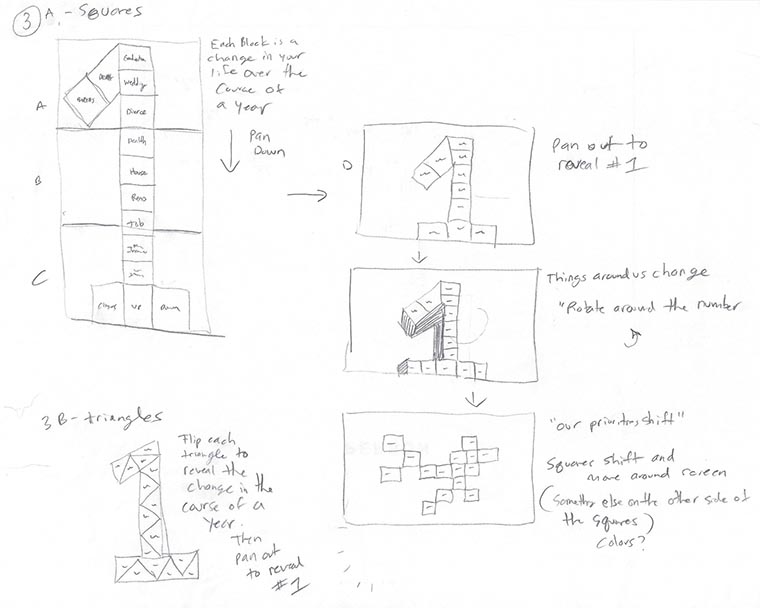 3 A - Squares
Each Block is a
change in your
life over the
course of
a year
Pan
Down
A
B
C
Death
Wedding
Divorce
Health
House
Reno
Job
UP
D
Pan out to
reveal #1
Things around us change
"Rotate around the number
"our priorities shift"
Squares shift and
move around screen
(Something else on the other side of
the squares)
Colors?
3 B - triangles
Flip each
triangle to
reveal the
change in the
course of a
year.
Then
pan out
to reveal
#1